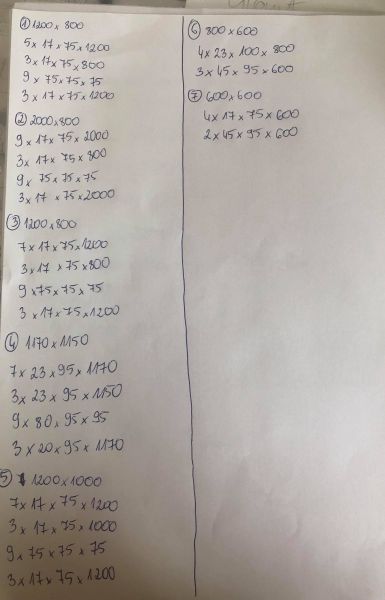 ① 1200 x 800
5 x 17 x 75 x 1200
3 x 17 x 75 x 800
9 x 75 x 75 x 75
3 x 17 x 75 x 1200
② 2000 x 800
9 x 17 x 75 x 2000
3 x 17 x 75 x 800
9 x 75 x 75 x 75
3 x 17 x 75 x 2000
③ 1200 x 800
7 x 17 x 75 x 1200
3 x 17 x 75 x 800
9 x 75 x 75 x 75
3 x 17 x 75 x 1200
④ 1170 x 1150
7 x 23 x 95 x 1170
3 x 23 x 95 x 1150
9 x 80 x 95 x 95
3 x 20 x 95 x 1170
⑤ 1200 x 1000
7 x 17 x 75 x 1200
3 x 17 x 75 x 1000
9 x 75 x 75 x 75
3 x 17 x 75 x 1200
⑥ 800 x 600
4 x 23 x 100 x 800
3 x 45 x 95 x 600
⑦ 600 x 600
4 x 17 x 75 x 600
2 x 45 x 95 x 600